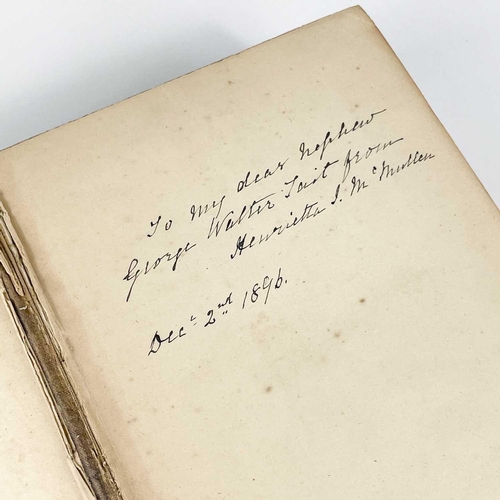 To my dear nephew
George Walter Tait from
Henrietta J. McMullen
Decr 2nd 1896.